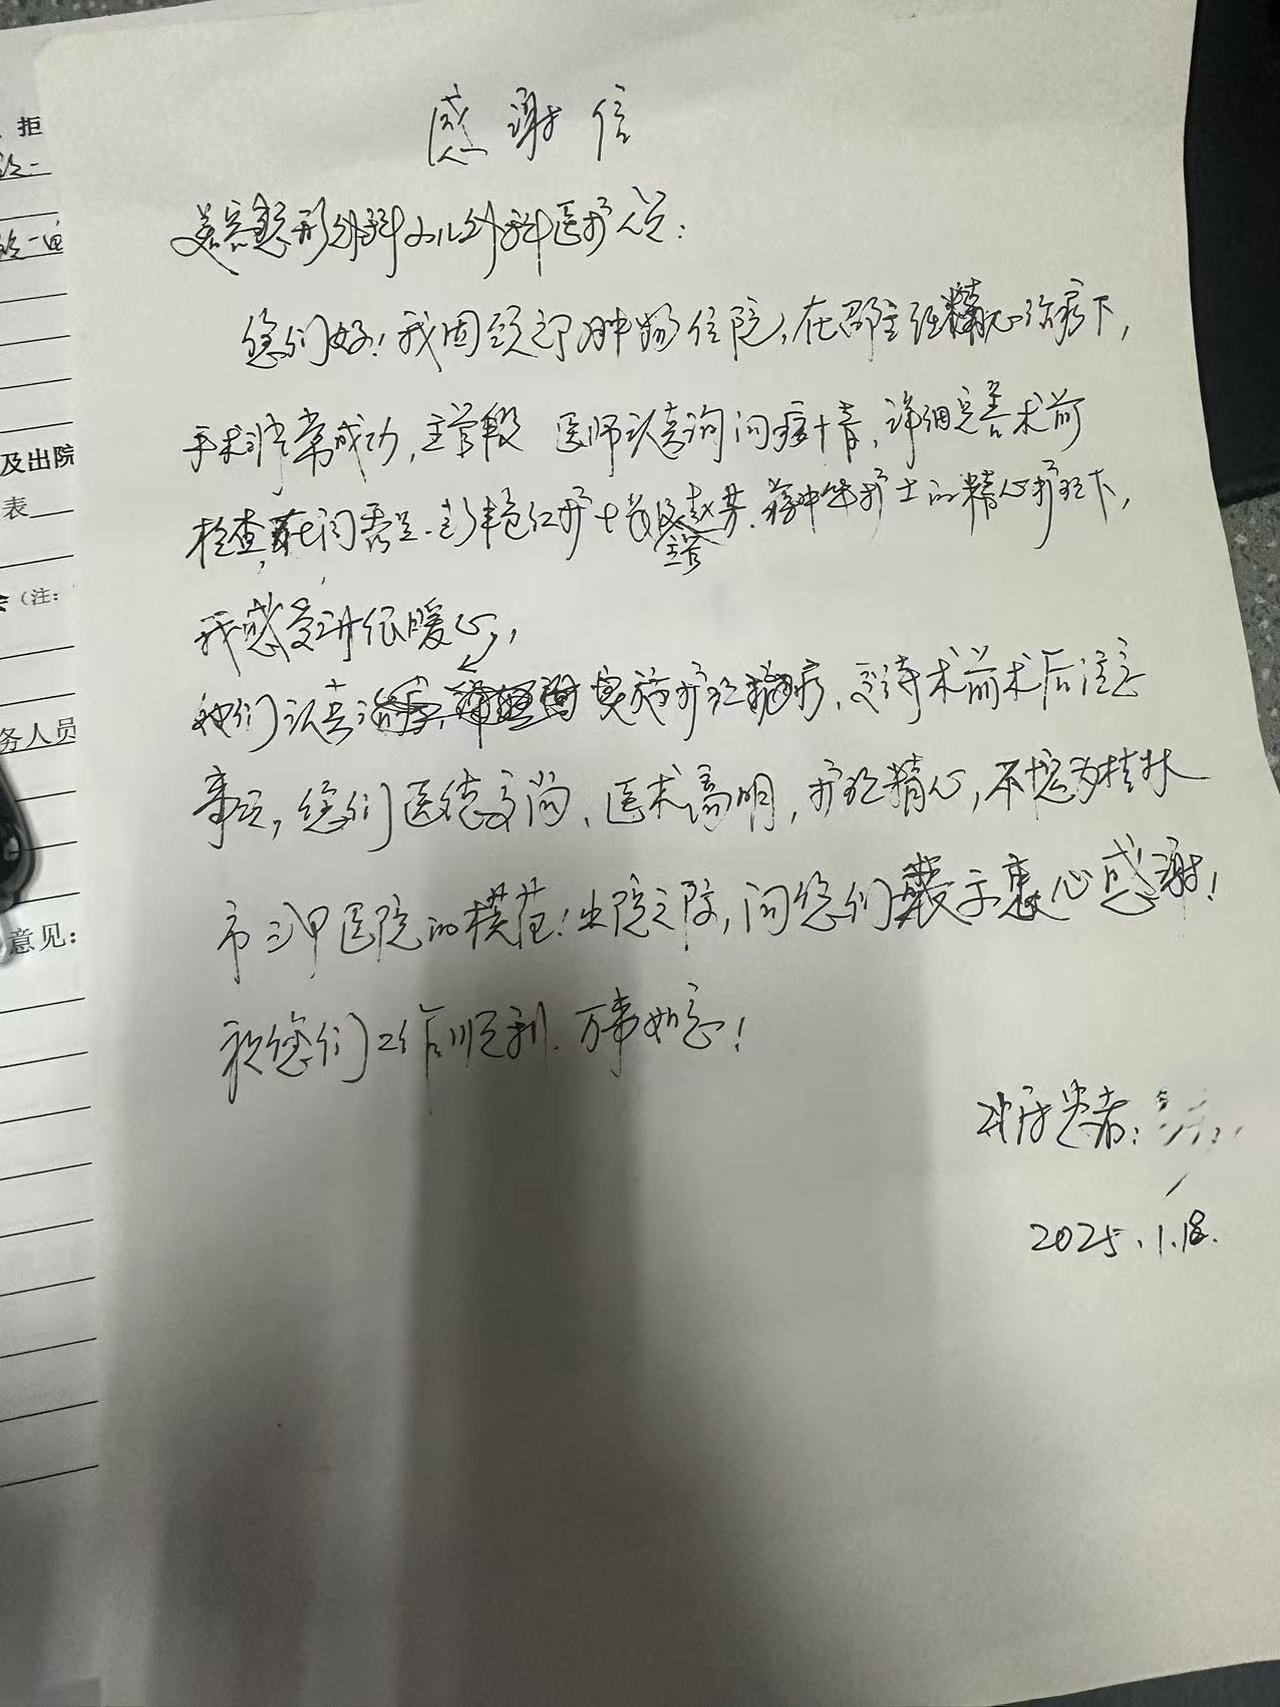 感谢信
美容整形外科小儿外科医护人员:
您们好!我因颈部肿物住院,在邵主任精心治疗下,
手术非常成功,主管段 医师认真询问病情,详细完善术前
检查,在闫 护士长及 主管 护士的精心护理下,
我感受到很暖心,
她们认真 实施护理 治疗,交待术前术后注意
事项,您们医德高尚、医术高明,护理精心,不愧为桂林
市三甲医院的模范!出院之际,向您们表示衷心感谢!
祝您们工作顺利、万事如意!
患者:
2025.1.18.
拒
及出院
表
(注:
务人员
意见: